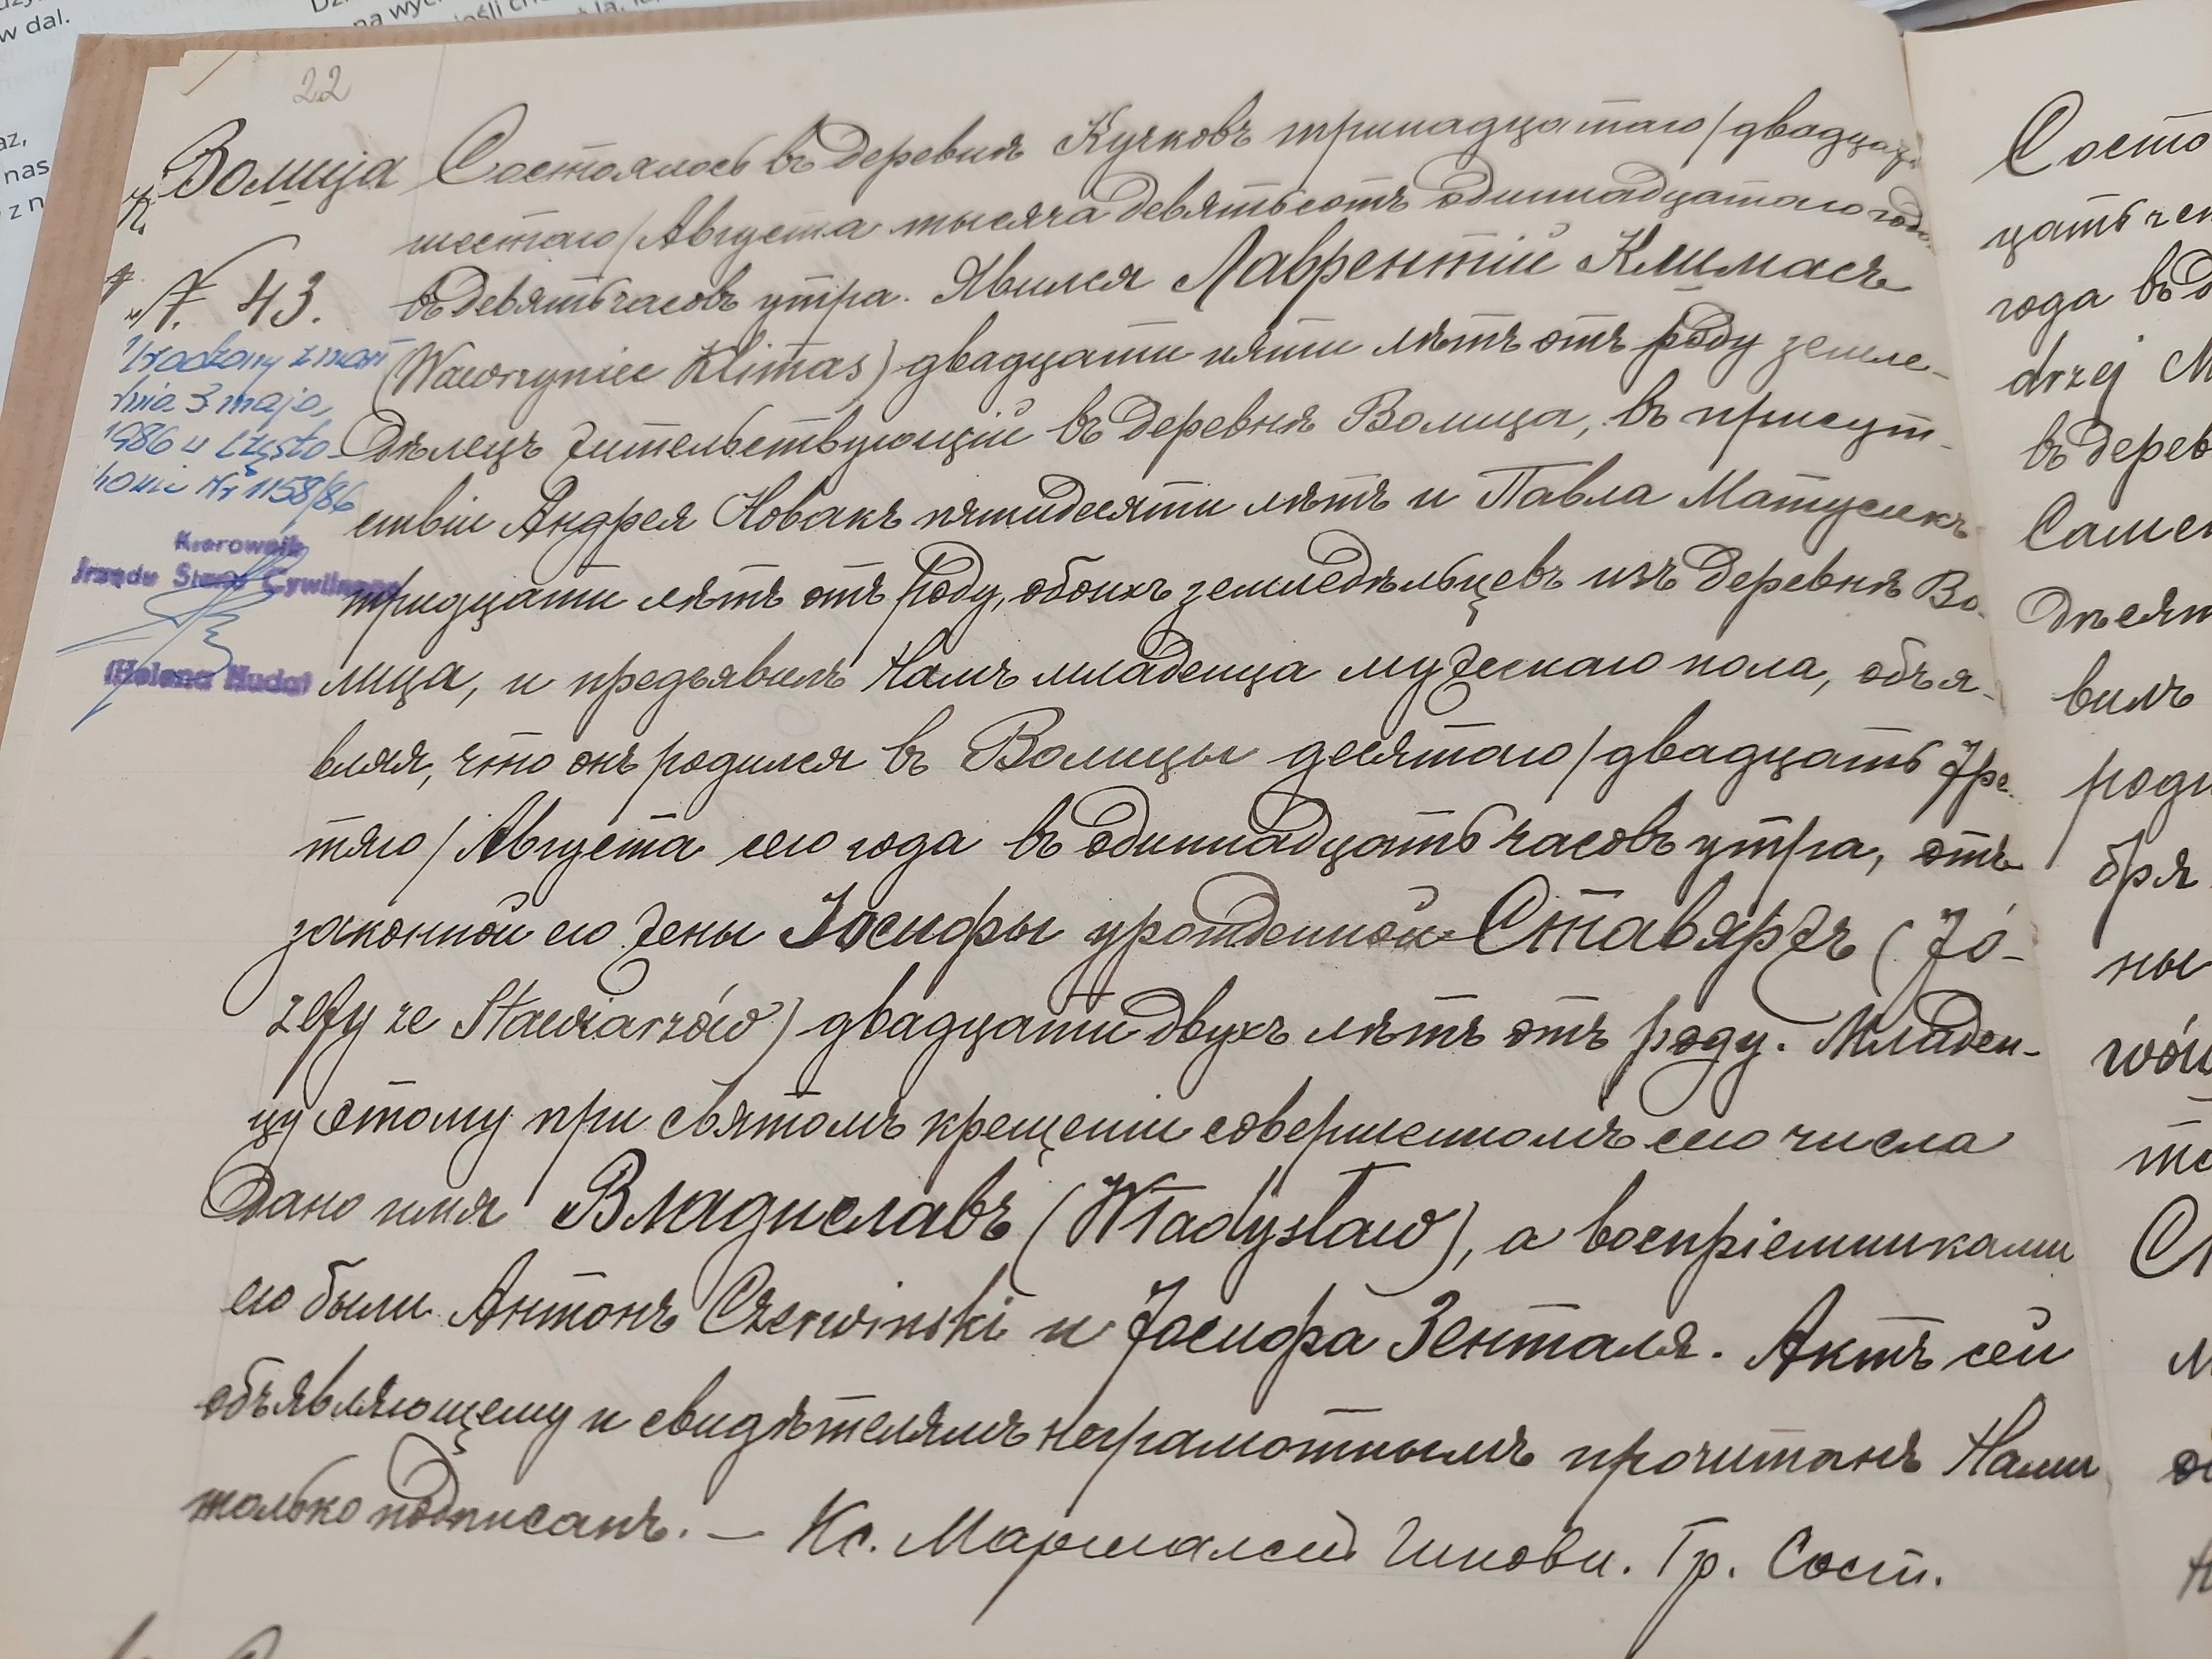 w dal.
az,
nas
z n
22
Волица
N. 43.
Urodzony zmarł
dnia 3 maja
1986 w Często-
chowie Nr 1158/86
Kierownik
Urzędu Stanu Cywilnego
(Helena Huda)
Состоялось въ деревнѣ Кучковъ тринадцатаго/двадцать
шестаго/Августа тысяча девятьсотъ одиннадцатаго года
въ девять часовъ утра. Явился Лаврентій Климасъ
(Wawrzyniec Klimas) двадцати пяти лѣтъ отъ роду земле-
дѣлецъ жительствующій въ деревнѣ Волица, въ присут-
ствіи Андрея Новакъ пятидесяти лѣтъ и Павла Матусекъ
тридцати лѣтъ отъ роду, обоихъ земледѣльцевъ изъ деревнѣ Во-
лица, и предъявилъ Намъ младенца мужескаго пола, объя-
вляя, что онъ родился въ Волицы десятаго/двадцать тре-
тяго/Августа сего года въ одиннадцать часовъ утра, отъ
законной его жены Іосифы урожденной Ставяржъ (Jó-
zefy ze Stawiarzów) двадцати двухъ лѣтъ отъ роду. Младен-
цу этому при святомъ крещеніи совершенномъ сего числа
дано имя Владиславъ (Władysław), а воспріемниками
его были Антонъ Czerwinski и Іосифа Зенталя. Актъ сей
объявляющему и свидѣтелямъ неграмотнымъ прочитанъ Нами
только подписанъ. — Кс. Гр. Сост.
Состо
цать чет
года въ д
drzej M
въ дерев
вилъ
роди
бря
ны